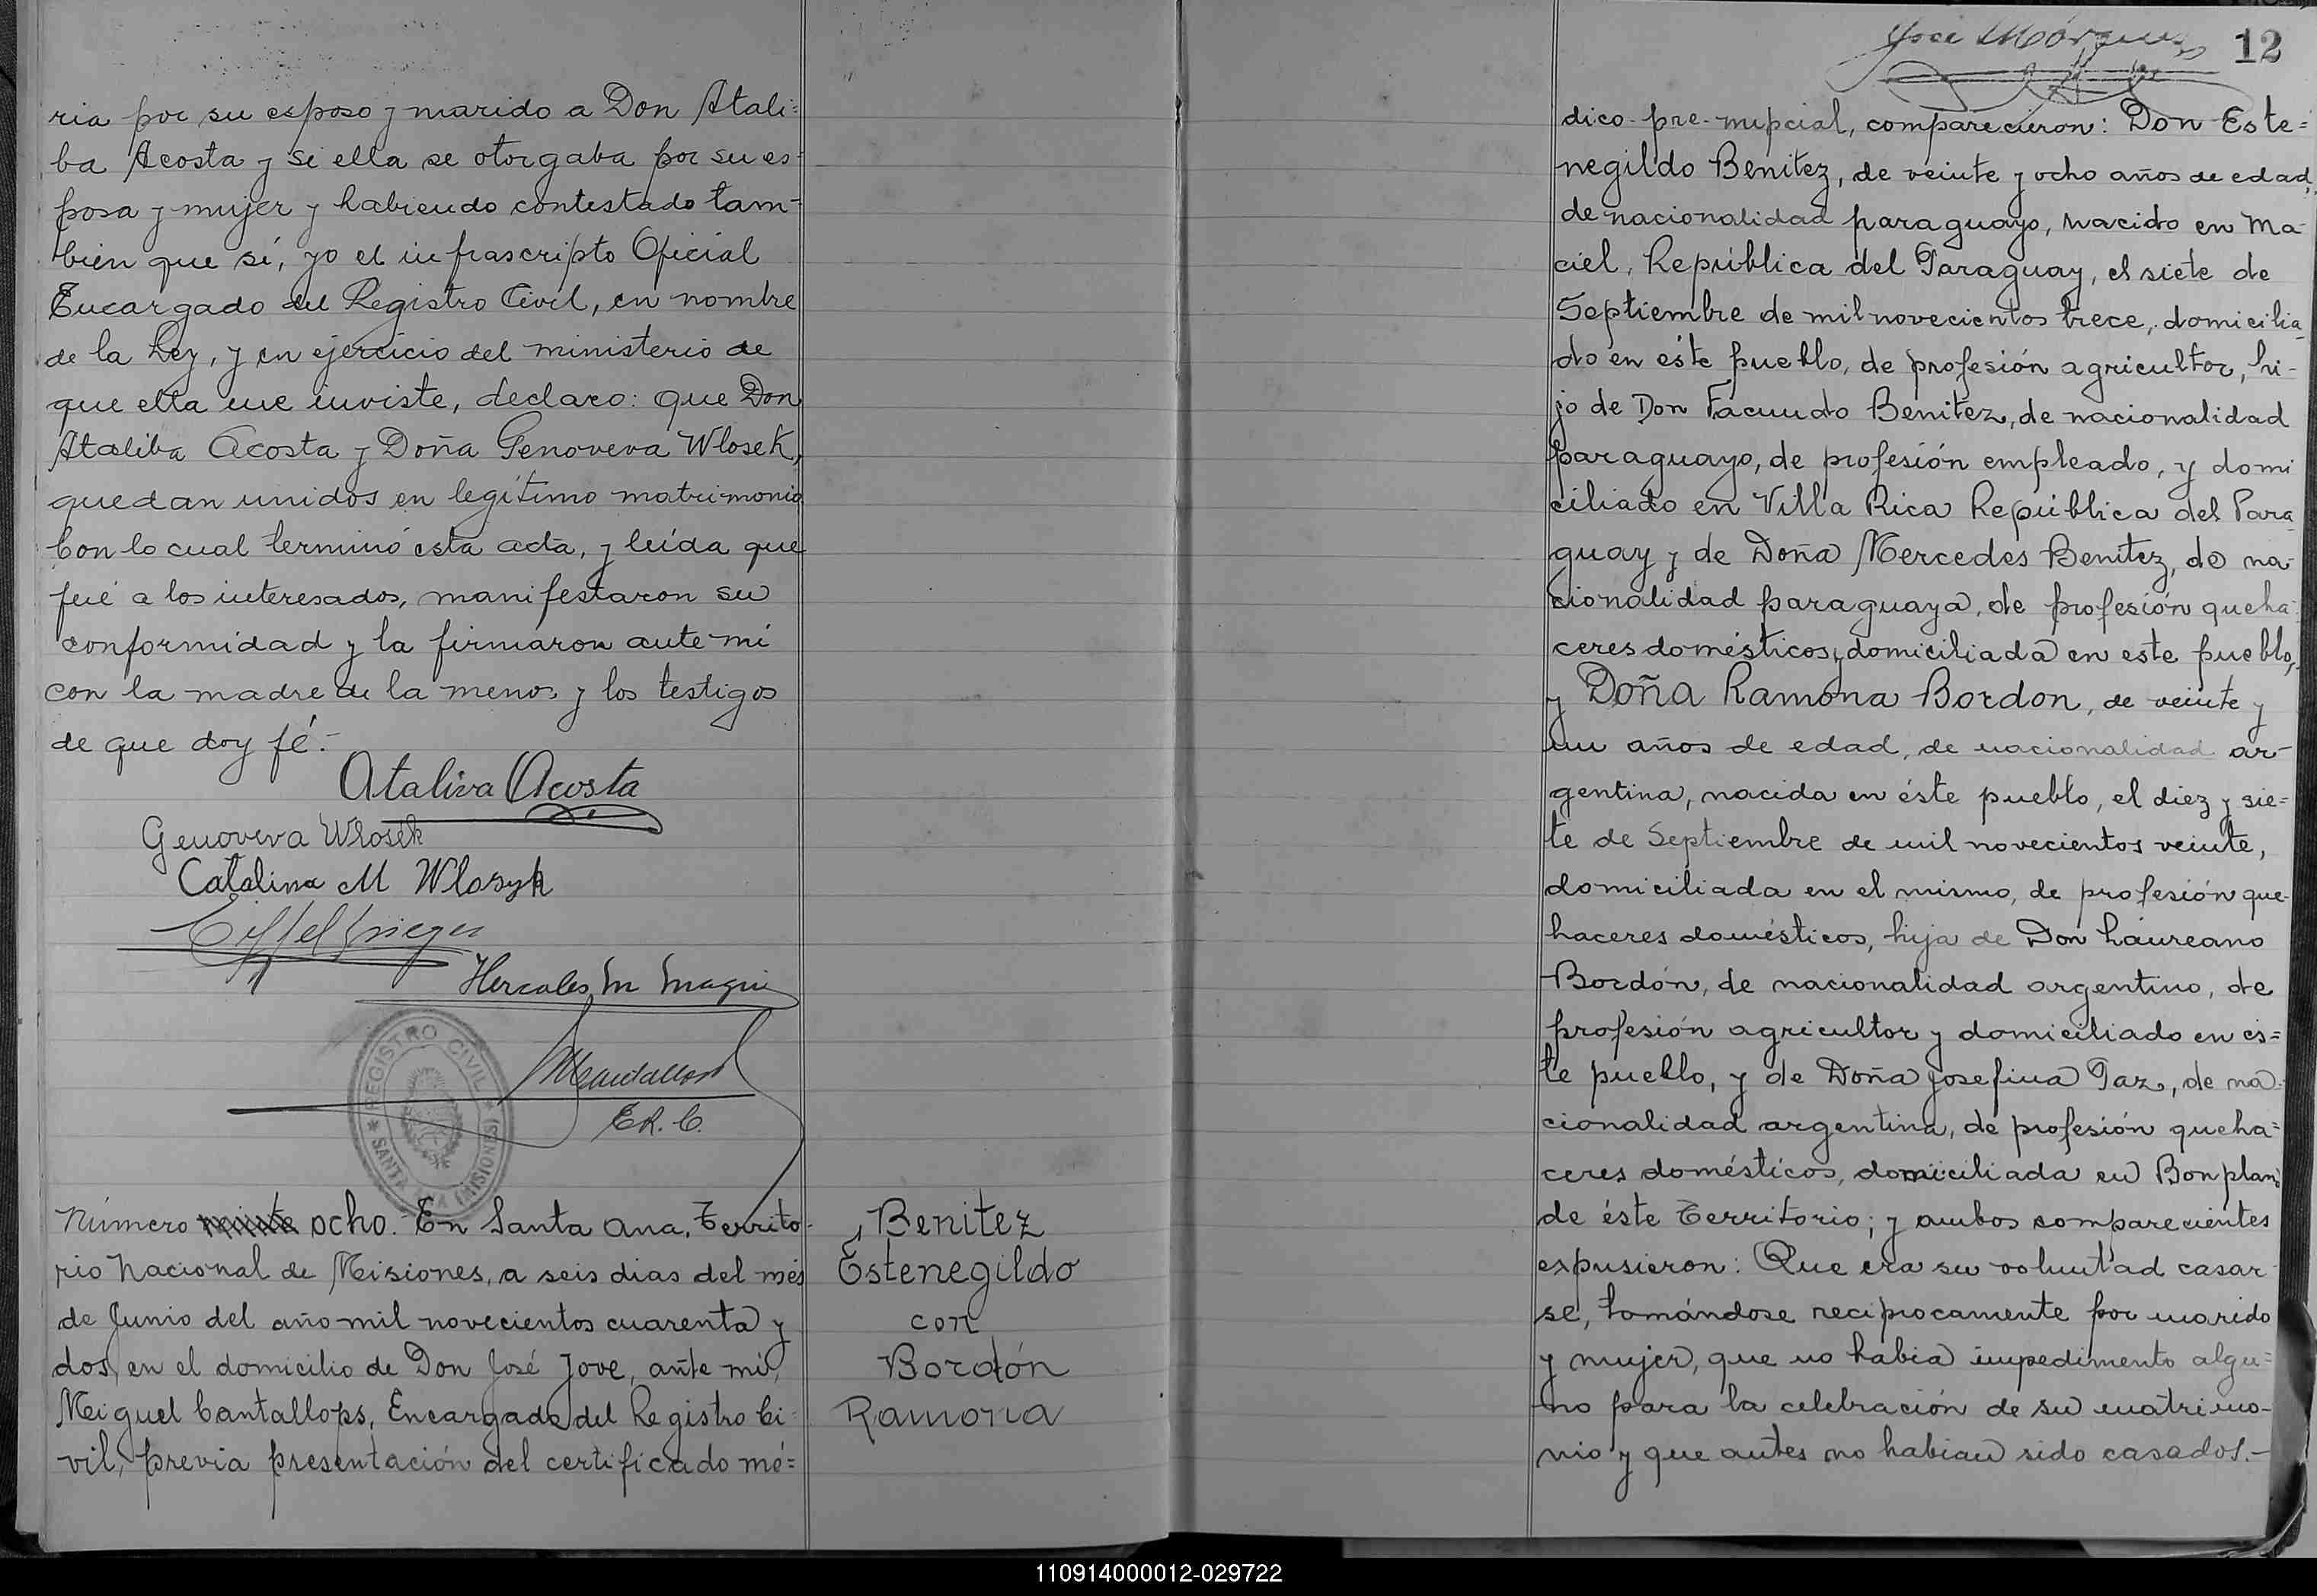 ria por su esposo y marido a Don Atali=
ba Acosta y si ella se otorgaba por su es=
posa y mujer y habiendo contestado tam-
bien que sí, yo el infrascripto Oficial
Encargado del Registro Civil, en nombre
de la Ley, y en ejercicio del ministerio de
que ella me inviste, declaro: que Don
Ataliba Acosta y Doña Genoveva Wlosek,
quedan unidos en legítimo matrimonio
Con lo cual terminó esta acta, y leída que
fué a los interesados, manifestaron su
conformidad y la firmaron ante mi
con la madre de la menor y los testigos
de que doy fé.-
Ataliva Acosta
Genoveva Wlosek
Catalina M Wlosyk
Hercules M
E R. C.
REGISTRO CIVIL
* SANTA ANA (MISIONES) *
Número ocho.- En Santa Ana, Territo-
rio Nacional de Misiones, a seis dias del mes
de Junio del año mil novecientos cuarenta y
dos, en el domicilio de Don José Jove, ante mi,
Meiguel Cantallops, Encargado del Registro Ci-
vil, previa presentación del certificado mé=
Benitez
Estenegildo
con
Bordón
Ramona
José
12
dico-pre-nupcial, comparecieron: Don Este=
negildo Benitez, de veinte y ocho años de edad,
de nacionalidad paraguayo, nacido en Ma-
ciel, República del Paraguay, el siete de
Septiembre de mil novecientos trece, domicilia-
do en éste pueblo, de profesión agricultor, hi-
jo de Don Facundo Benitez, de nacionalidad
paraguayo, de profesión empleado, y domi
ciliado en Villa Rica República del Para-
guay y de Doña Mercedes Benitez, de na-
cionalidad paraguaya, de profesión queha-
ceres domésticos y domiciliada en este pueblo,
y Doña Ramona Bordon, de veinte y
un años de edad, de nacionalidad ar-
gentina, nacida en éste pueblo, el diez y sie=
te de Septiembre de mil novecientos veinte,
domiciliada en el mismo, de profesión que-
haceres domésticos, hija de Don Laureano
Bordón, de nacionalidad argentino, de
profesión agricultor y domiciliado en es=
te pueblo, y de Doña Josefina Paz, de na-
cionalidad argentina, de profesión queha=
ceres domésticos, domiciliada en Bonpland
de éste Territorio; y ambos comparecientes
expusieron: Que era su voluntad casar
se, tomándose reciprocamente por marido
y mujer, que no habia impedimento algu=
no para la celebración de su matrimo-
nio y que antes no habian sido casados.-
110914000012-029722